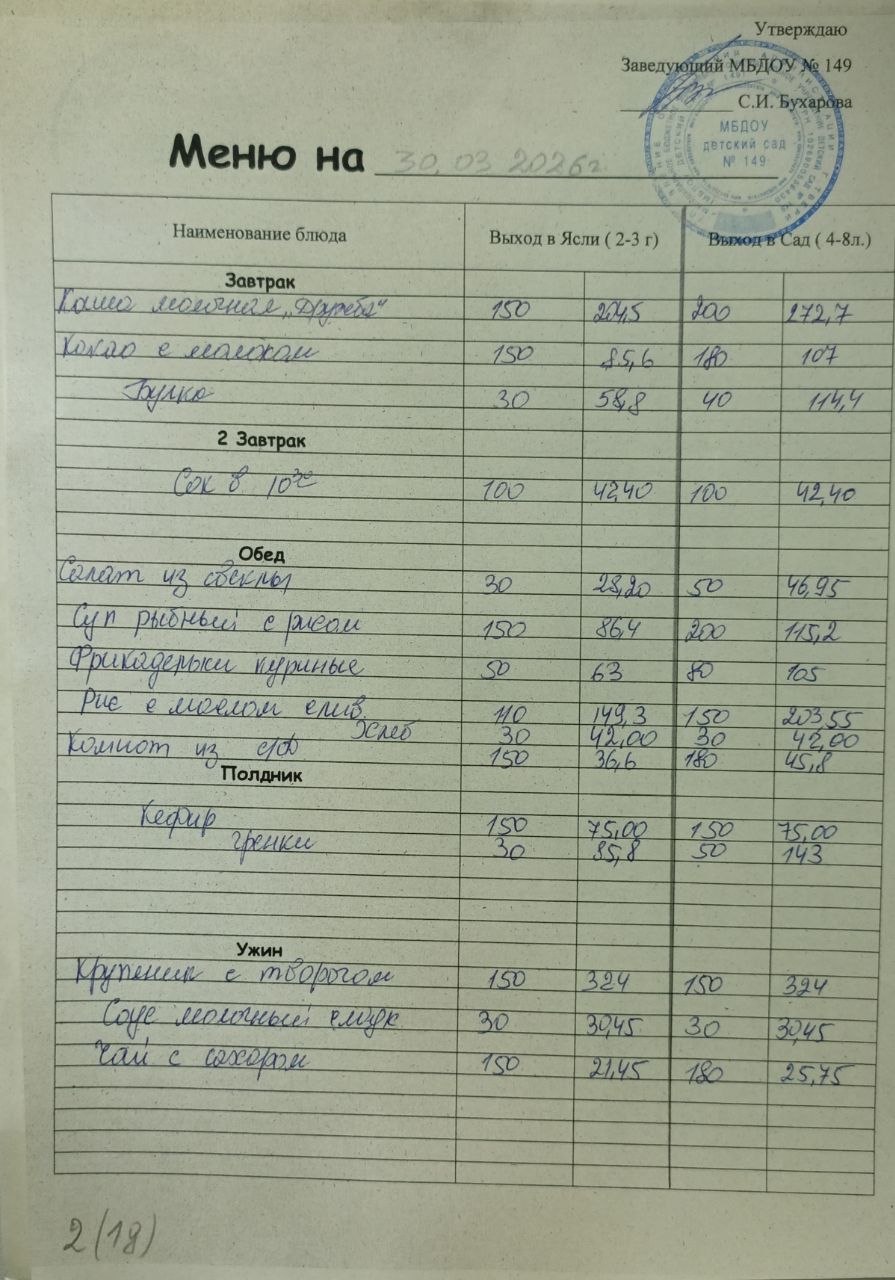 Утверждаю
Заведующий МБДОУ № 149
С.И. Бухарова
МБДОУ
детский сад
№ 149
Меню на 30.03.2026г
Наименование блюда Выход в Ясли ( 2-3 г) Выход в Сад ( 4-8л.)
Завтрак
Каша молочная „Дружба" 150 204,5 200 272,7
Какао с молоком 150 85,6 180 107
Булка 30 58,8 40 114,4
2 Завтрак
Сок в 10³⁰ 100 42,40 100 42,40
Обед
Салат из свеклы 30 28,20 50 46,95
Суп рыбный с рисом 150 86,4 200 115,2
Фрикадельки куриные 50 63 80 105
Рис с маслом слив 110 149,3 150 203,55
Хлеб 30 42,00 30 42,00
Компот из с/ф 150 36,6 180 45,8
Полдник
Кефир 150 75,00 150 75,00
гренки 30 85,8 50 143
Ужин
Крупеник с творогом 150 324 150 324
Соус молочный 30 30,45 30 30,45
Чай с сахаром 150 21,45 180 25,75
2(18)